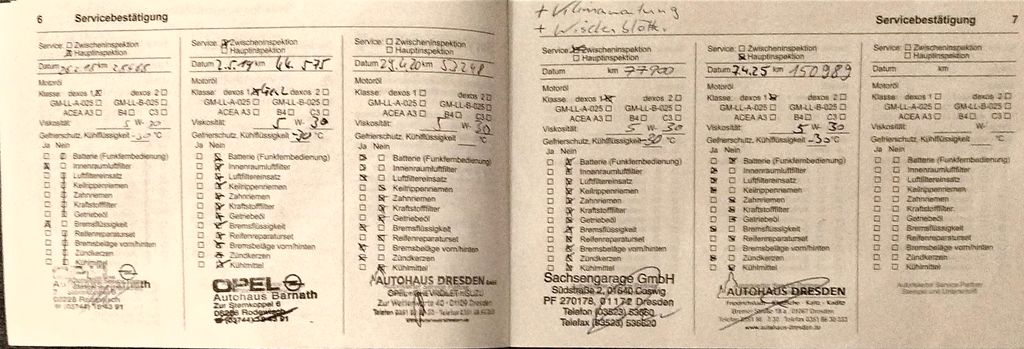 6 Servicebestätigung
Service: Zwischeninspektion
Hauptinspektion
Datum km
Motoröl
Klasse: dexos 1 dexos 2
GM-LL-A-025 GM-LL-B-025
ACEA A3 B4 C3
Viskosität: W-
Gefrierschutz, Kühlflüssigkeit -30 °C
Ja Nein
Batterie (Funkfernbedienung)
Innenraumluftfilter
Luftfiltereinsatz
Keilrippenriemen
Zahnriemen
Kraftstofffilter
Getriebeöl
Bremsflüssigkeit
Reifenreparaturset
Bremsbeläge vorn/hinten
Zündkerzen
Kühlmittel
08228 Rodewisch
(03744)
Service: Zwischeninspektion
Hauptinspektion
Datum 2.5.19 km 44 575
Motoröl
Klasse: dexos 1 dexos 2
GM-LL-A-025 GM-LL-B-025
ACEA A3 B4 C3
Viskosität: 5 W- 30
Gefrierschutz, Kühlflüssigkeit -30 °C
Ja Nein
Batterie (Funkfernbedienung)
Innenraumluftfilter
Luftfiltereinsatz
Keilrippenriemen
Zahnriemen
Kraftstofffilter
Getriebeöl
Bremsflüssigkeit
Reifenreparaturset
Bremsbeläge vorn/hinten
Zündkerzen
Kühlmittel
OPEL
Autohaus Barnath
Zur Sternkoppel 6
08228 Rodewisch
Service: Zwischeninspektion
Hauptinspektion
Datum km
Motoröl
Klasse: dexos 1 dexos 2
GM-LL-A-025 GM-LL-B-025
ACEA A3 B4 C3
Viskosität: 5 W- 30
Gefrierschutz, Kühlflüssigkeit °C
Ja Nein
Batterie (Funkfernbedienung)
Innenraumluftfilter
Luftfiltereinsatz
Keilrippenriemen
Zahnriemen
Kraftstofffilter
Getriebeöl
Bremsflüssigkeit
Reifenreparaturset
Bremsbeläge vorn/hinten
Zündkerzen
Kühlmittel
AUTOHAUS DRESDEN
01139 Dresden
+ Klimawartung
+ Wischerblätter
Servicebestätigung 7
Service: Zwischeninspektion
Hauptinspektion
Datum km 77900
Motoröl
Klasse: dexos 1 dexos 2
GM-LL-A-025 GM-LL-B-025
ACEA A3 B4 C3
Viskosität: 5 W- 30
Gefrierschutz, Kühlflüssigkeit -30 °C
Ja Nein
Batterie (Funkfernbedienung)
Innenraumluftfilter
Luftfiltereinsatz
Keilrippenriemen
Zahnriemen
Kraftstofffilter
Getriebeöl
Bremsflüssigkeit
Reifenreparaturset
Bremsbeläge vorn/hinten
Zündkerzen
Kühlmittel
Sachsengarage GmbH
Südstraße 2, 01640 Coswig
PF 270178, 01172 Dresden
Telefon (03523)
Telefax (03523)
Service: Zwischeninspektion
Hauptinspektion
Datum 7.4.25 km 150989
Motoröl
Klasse: dexos 1 dexos 2
GM-LL-A-025 GM-LL-B-025
ACEA A3 B4 C3
Viskosität: 5 W- 30
Gefrierschutz, Kühlflüssigkeit °C
Ja Nein
Batterie (Funkfernbedienung)
Innenraumluftfilter
Luftfiltereinsatz
Keilrippenriemen
Zahnriemen
Kraftstofffilter
Getriebeöl
Bremsflüssigkeit
Reifenreparaturset
Bremsbeläge vorn/hinten
Zündkerzen
Kühlmittel
AUTOHAUS DRESDEN
www.autohaus-dresden.de
Service: Zwischeninspektion
Hauptinspektion
Datum km
Motoröl
Klasse: dexos 1 dexos 2
GM-LL-A-025 GM-LL-B-025
ACEA A3 B4 C3
Viskosität: W-
Gefrierschutz, Kühlflüssigkeit °C
Ja Nein
Batterie (Funkfernbedienung)
Innenraumluftfilter
Luftfiltereinsatz
Keilrippenriemen
Zahnriemen
Kraftstofffilter
Getriebeöl
Bremsflüssigkeit
Reifenreparaturset
Bremsbeläge vorn/hinten
Zündkerzen
Kühlmittel
Autorisierter Service Partner
Stempel und Unterschrift